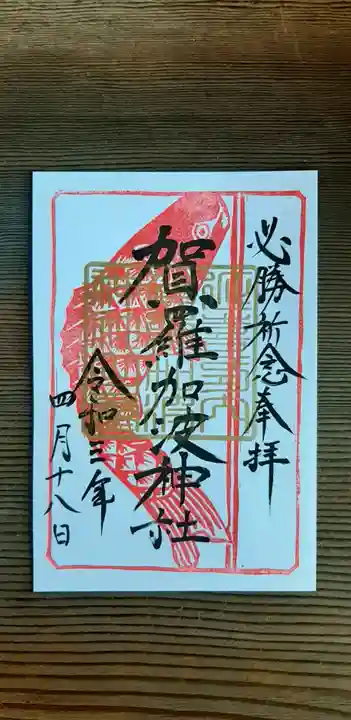 必勝祈念奉拝
賀羅加波神社
令和三年
四月十八日